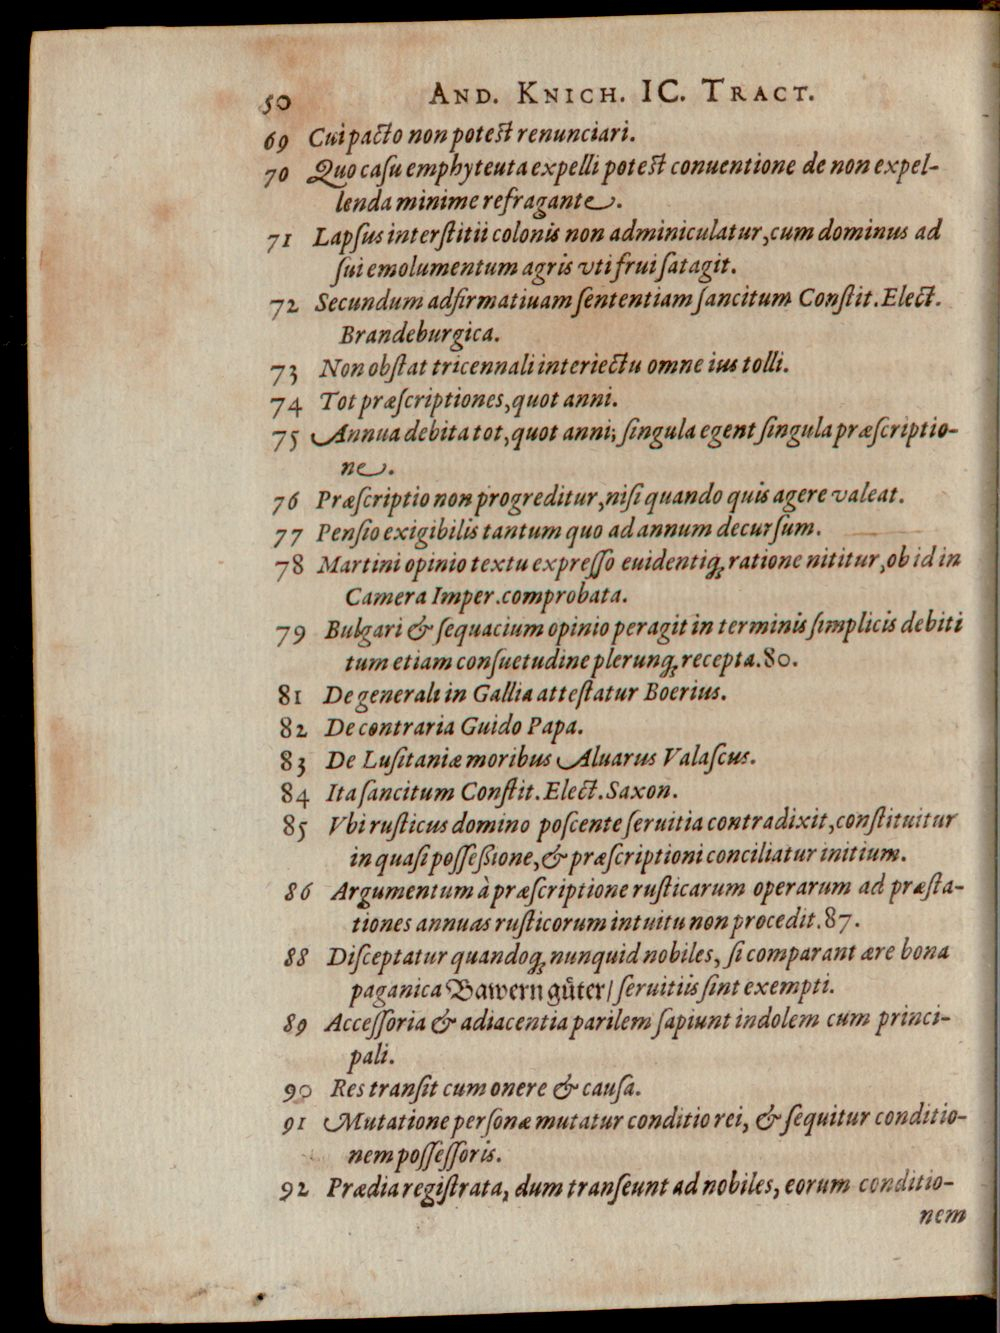 50 AND. KNICH. IC. TRACT.
69 Cui pacto non potest renunciari.
70 Quo casu emphyteuta expelli potest conuentione de non expel-
lenda minime refragante.
71 Lapsus interstitii colonis non adminiculatur, cum dominus ad
sui emolumentum agris vti frui satagit.
72 Secundum adfirmatiuam sententiam sancitum Constit. Elect.
Brandeburgica.
73 Non obstat tricennali interiectu omne ius tolli.
74 Tot præscriptiones, quot anni.
75 Annua debita tot, quot anni; singula egent singula præscriptio-
ne.
76 Præscriptio non progreditur, nisi quando quis agere valeat.
77 Pensio exigibilis tantum quo ad annum decursum.
78 Martini opinio textu expresso euidentiq; ratione nititur, ob id in
Camera Imper. comprobata.
79 Bulgari & sequacium opinio peragit in terminis simplicis debiti
tum etiam consuetudine plerunq; recepta. 80.
81 De generali in Gallia attestatur Boerius.
82 De contraria Guido Papa.
83 De Lusitaniæ moribus Aluarus Valascus.
84 Ita sancitum Constit. Elect. Saxon.
85 Vbi rusticus domino poscente seruitia contradixit, constituitur
in quasi possessione, & præscriptioni conciliatur initium.
86 Argumentum à præscriptione rusticarum operarum ad præsta-
tiones annuas rusticorum intuitu non procedit. 87.
88 Disceptatur quandoq; nunquid nobiles, si comparant ære bona
paganica Bawern guͤter/ seruitiis sint exempti.
89 Accessoria & adiacentia parilem sapiunt indolem cum princi-
pali.
90 Res transit cum onere & causa.
91 Mutatione personæ mutatur conditio rei, & sequitur conditio-
nem possessoris.
92 Prædia registrata, dum transeunt ad nobiles, eorum conditio-
nem